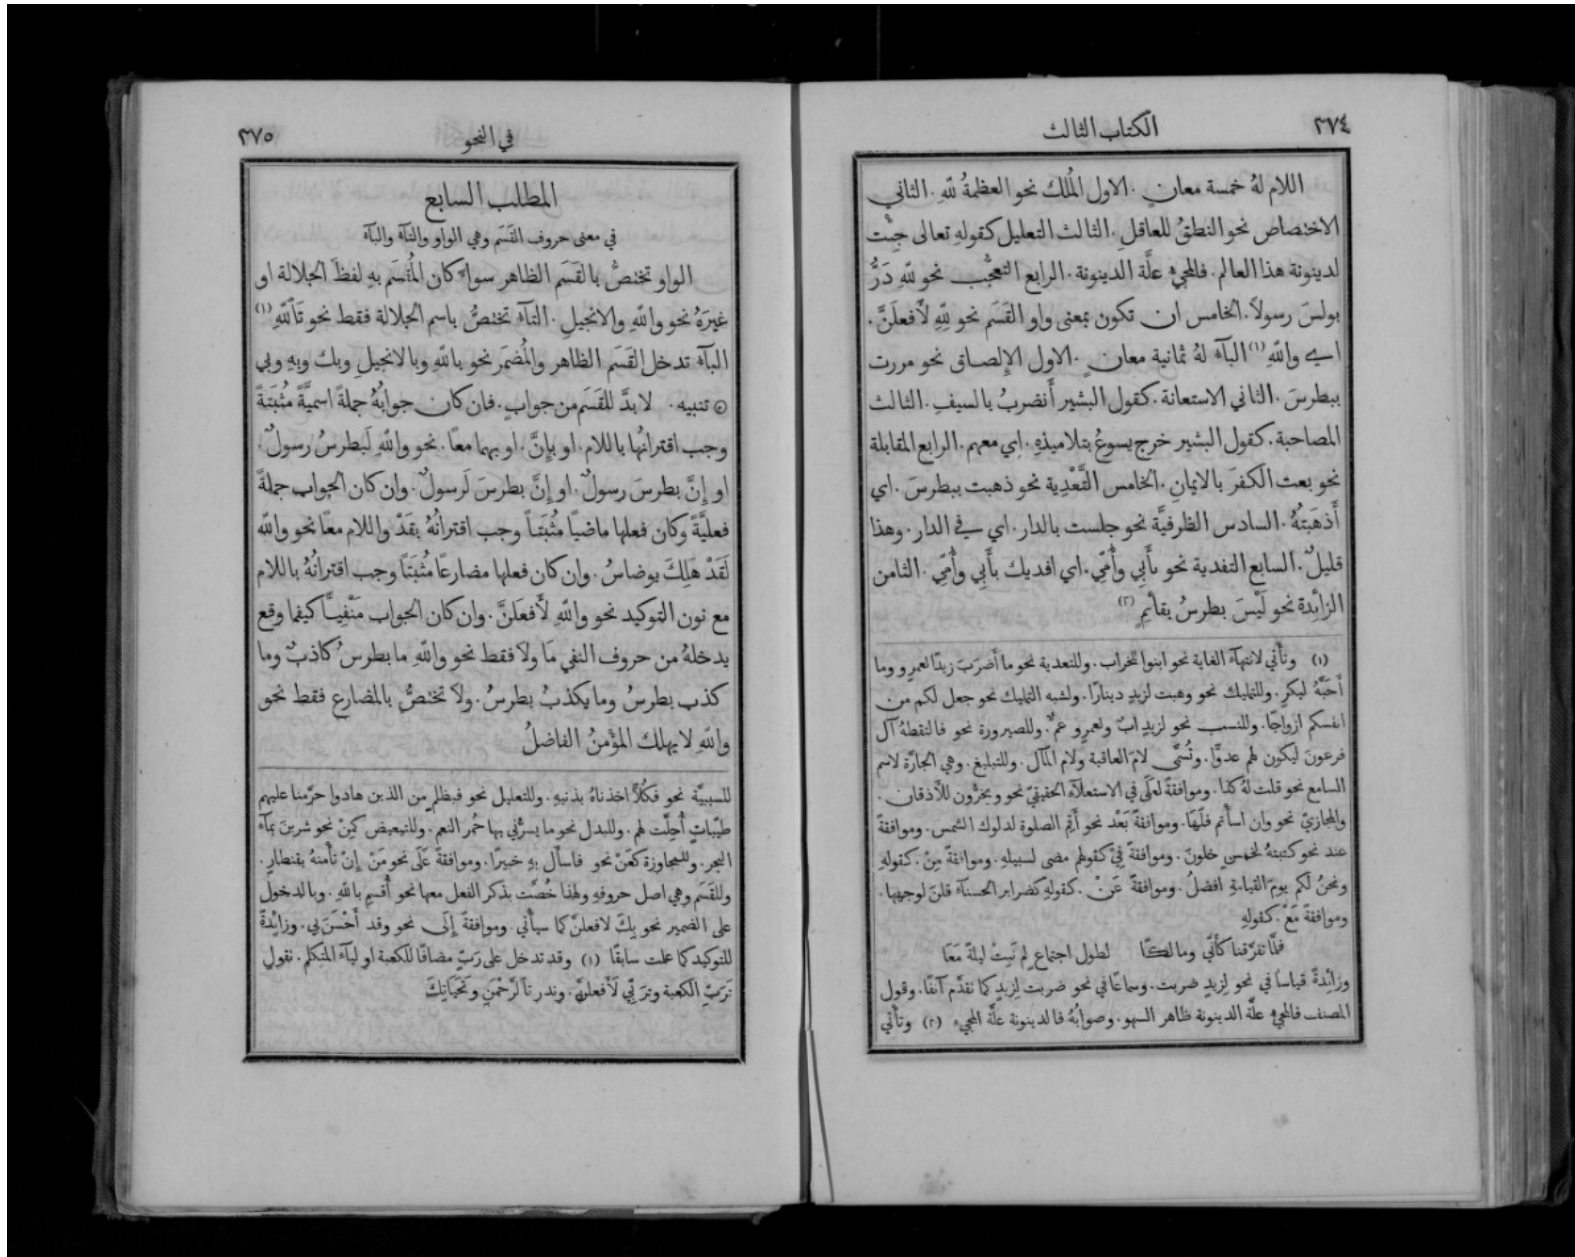 ٣٧٤
الكتاب الثالث
اللام لهُ خمسة معانٍ . الاول المُلك نحو العظمةُ للّهِ . الثاني
الاختصاص نحو النطقُ للعاقل . الثالث التعليل كقولهِ تعالى جِئْت
لدينونة هذا العالم . فالمجيءُ علَّة الدينونة . الرابع التعجُّب نحو للّهِ دَرُّ
بولسَ رسولاً . الخامس ان تكون بمعنى واو القَسَم نحو لِلّهِ لَأَفعلَنَّ .
اي واللّهِ (١) البآءُ لهُ ثمانية معانٍ . الاول الإِلصاق نحو مررت
ببطرسَ . الثاني الاستعانة . كقول البشير أَنضربُ بالسيفِ . الثالث
المصاحبة . كقول البشير خرج يسوعُ بتلاميذهِ . اي معهم . الرابع المقابلة
نحو بعت الكفرَ بالايمانِ . الخامس التَّعْدِية نحو ذهبت ببطرسَ . اي
أَذهَبتُهُ . السادس الظرفيَّة نحو جلست بالدار . اي في الدار . وهذا
قليلٌ . السابع التفدية نحو بأَبِي وأُمّي . اي افديك بأَبِي وأُمّي . الثامن
الزائدة نحو لَيْسَ بطرسُ بقائمٍ (٢)
(١) وتأتي لانتهآء الغاية نحو ابنوا للخراب . وللتعدية نحو ما أَضرَبَ زيدًا لعمرٍو وما
أَحَبَّهُ لبكرٍ . وللتمليك نحو وهبت لزيدٍ دينارًا . ولشبه التمليك نحو جعل لكم من
انفسكم ازواجًا . وللنسب نحو لزيدٍ ابٌ ولعمرٍو عمٌّ . وللصيرورة نحو فالتقطهُ آل
فرعونَ ليكون لهم عدوًّا . وتُسَمَّى لامَ العاقبة ولام المآل . وللتبليغ . وهي الجارَّة لاسم
السامع نحو قلت لهُ كذا . وموافقةً لعلى في الاستعلآء الحقيقيّ نحو ويخرُّون للأَذقان .
والمجازيّ نحو وان اسأتم فلَهَا . وموافقةً بَعْد نحو أَقِمِ الصلوةَ لدلوك الشمس . وموافقةً
عند نحو كتبتهُ لخمسٍ خلونَ . وموافقةً فِي كقولهم مضى لسبيلهِ . وموافقةً مِنْ . كقولهِ
ونحنُ لكم يومَ القيامةِ افضلُ . وموافقةً عَنْ . كقولهِ كضراير الحسنآء قلنَ لوجهها .
وموافقةً مَعْ . كقولهِ
فلمَّا تفرَّقنا كأَنّي ومالكًا لطول اجتماعٍ لم نَبِتْ ليلةً مَعَا
وزائدةً قياسًا في نحو لِزيدٍ ضربت . وسماعًا في نحو ضربت لِزيدٍ كما تقدَّم آنفًا . وقول
المصنف فالمجيءُ علَّة الدينونة ظاهر السهو . وصوابُهُ فالدينونة علَّة المجيء (٢) وتأتي
في النحو
٣٧٥
المطلب السابع
في معنى حروف القَسَم وهي الواو والتآء والبآء
الواو تختصُّ بالقَسَم الظاهر سوآءٌ كان المُقسَم بهِ لفظَ الجلالة او
غيرَهُ نحو واللّهِ والانجيلِ . التآءُ تختصُّ باسم الجلالة فقط نحو تَاللّهِ (١)
البآءُ تدخل القَسَم الظاهر والمُضمَر نحو باللّهِ وبالانجيلِ وبك وبهِ وبي
۞ تنبيه . لا بدَّ للقَسَم من جوابٍ . فان كان جوابُهُ جملةً اسميَّةً مُثبَتةً
وجب اقترانُها باللام . او بإِنَّ . او بهما معًا . نحو واللّهِ لَبطرسُ رسولٌ .
او إِنَّ بطرسَ رسولٌ . او إِنَّ بطرسَ لَرسولٌ . وان كان الجواب جملةً
فعليَّةً وكان فعلها ماضيًا مُثبَتاً وجب اقترانُهُ بقَدْ واللام معًا نحو واللّه
لَقَدْ هَلِكَ يوضاسُ . وان كان فعلها مضارعًا مُثبَتًا وجب اقترانُهُ باللام
مع نون التوكيد نحو واللّهِ لَأَفعلَنَّ . وان كان الجواب مَنْفِيًّا كيفما وقع
يدخلهُ من حروف النفي مَا ولاَ فقط نحو واللّهِ ما بطرسُ كاذبٌ وما
كذب بطرسُ وما يكذبُ بطرسُ . ولاَ تختصُّ بالمضارع فقط نحو
واللّهِ لا يهلك المؤْمنُ الفاضلُ
للسببيَّة نحو فكُلًّا اخذناهُ بذنبهِ . وللتعليل نحو فبظلمٍ من الذين هادوا حرَّمنا عليهم
طيّباتٍ أُحِلَّت لهم . وللبدل نحو ما يسرُّني بها حُمر النعم . وللتبعيض كمِنْ نحو شربنَ بمآء
البحر . وللمجاوزة كعَنْ نحو فاسأَل بهِ خبيرًا . وموافقةً عَلَى نحو مَنْ إِنْ تأْمنهُ بقنطارٍ .
وللقَسَم وهي اصل حروفهِ ولهذا خُصَّت بذكر الفعل معها نحو أُقسِم باللّهِ . وبالدخول
على الضمير نحو بِكَ لافعلنَّ كما سيأْتي . وموافقةً إِلَى نحو وقد أَحْسَنَ بي . وزائدةً
للتوكيد كما علمت سابقًا (١) وقد تدخل على رَبٍّ مضافًا للكعبة او ليآء المتكلم . نقول
تَرَبِّ الكعبةِ وتَرَبِّي لَأَفعلنَّ . وندر تَالرَّحْمٰنِ وتَحَيَاتِكَ